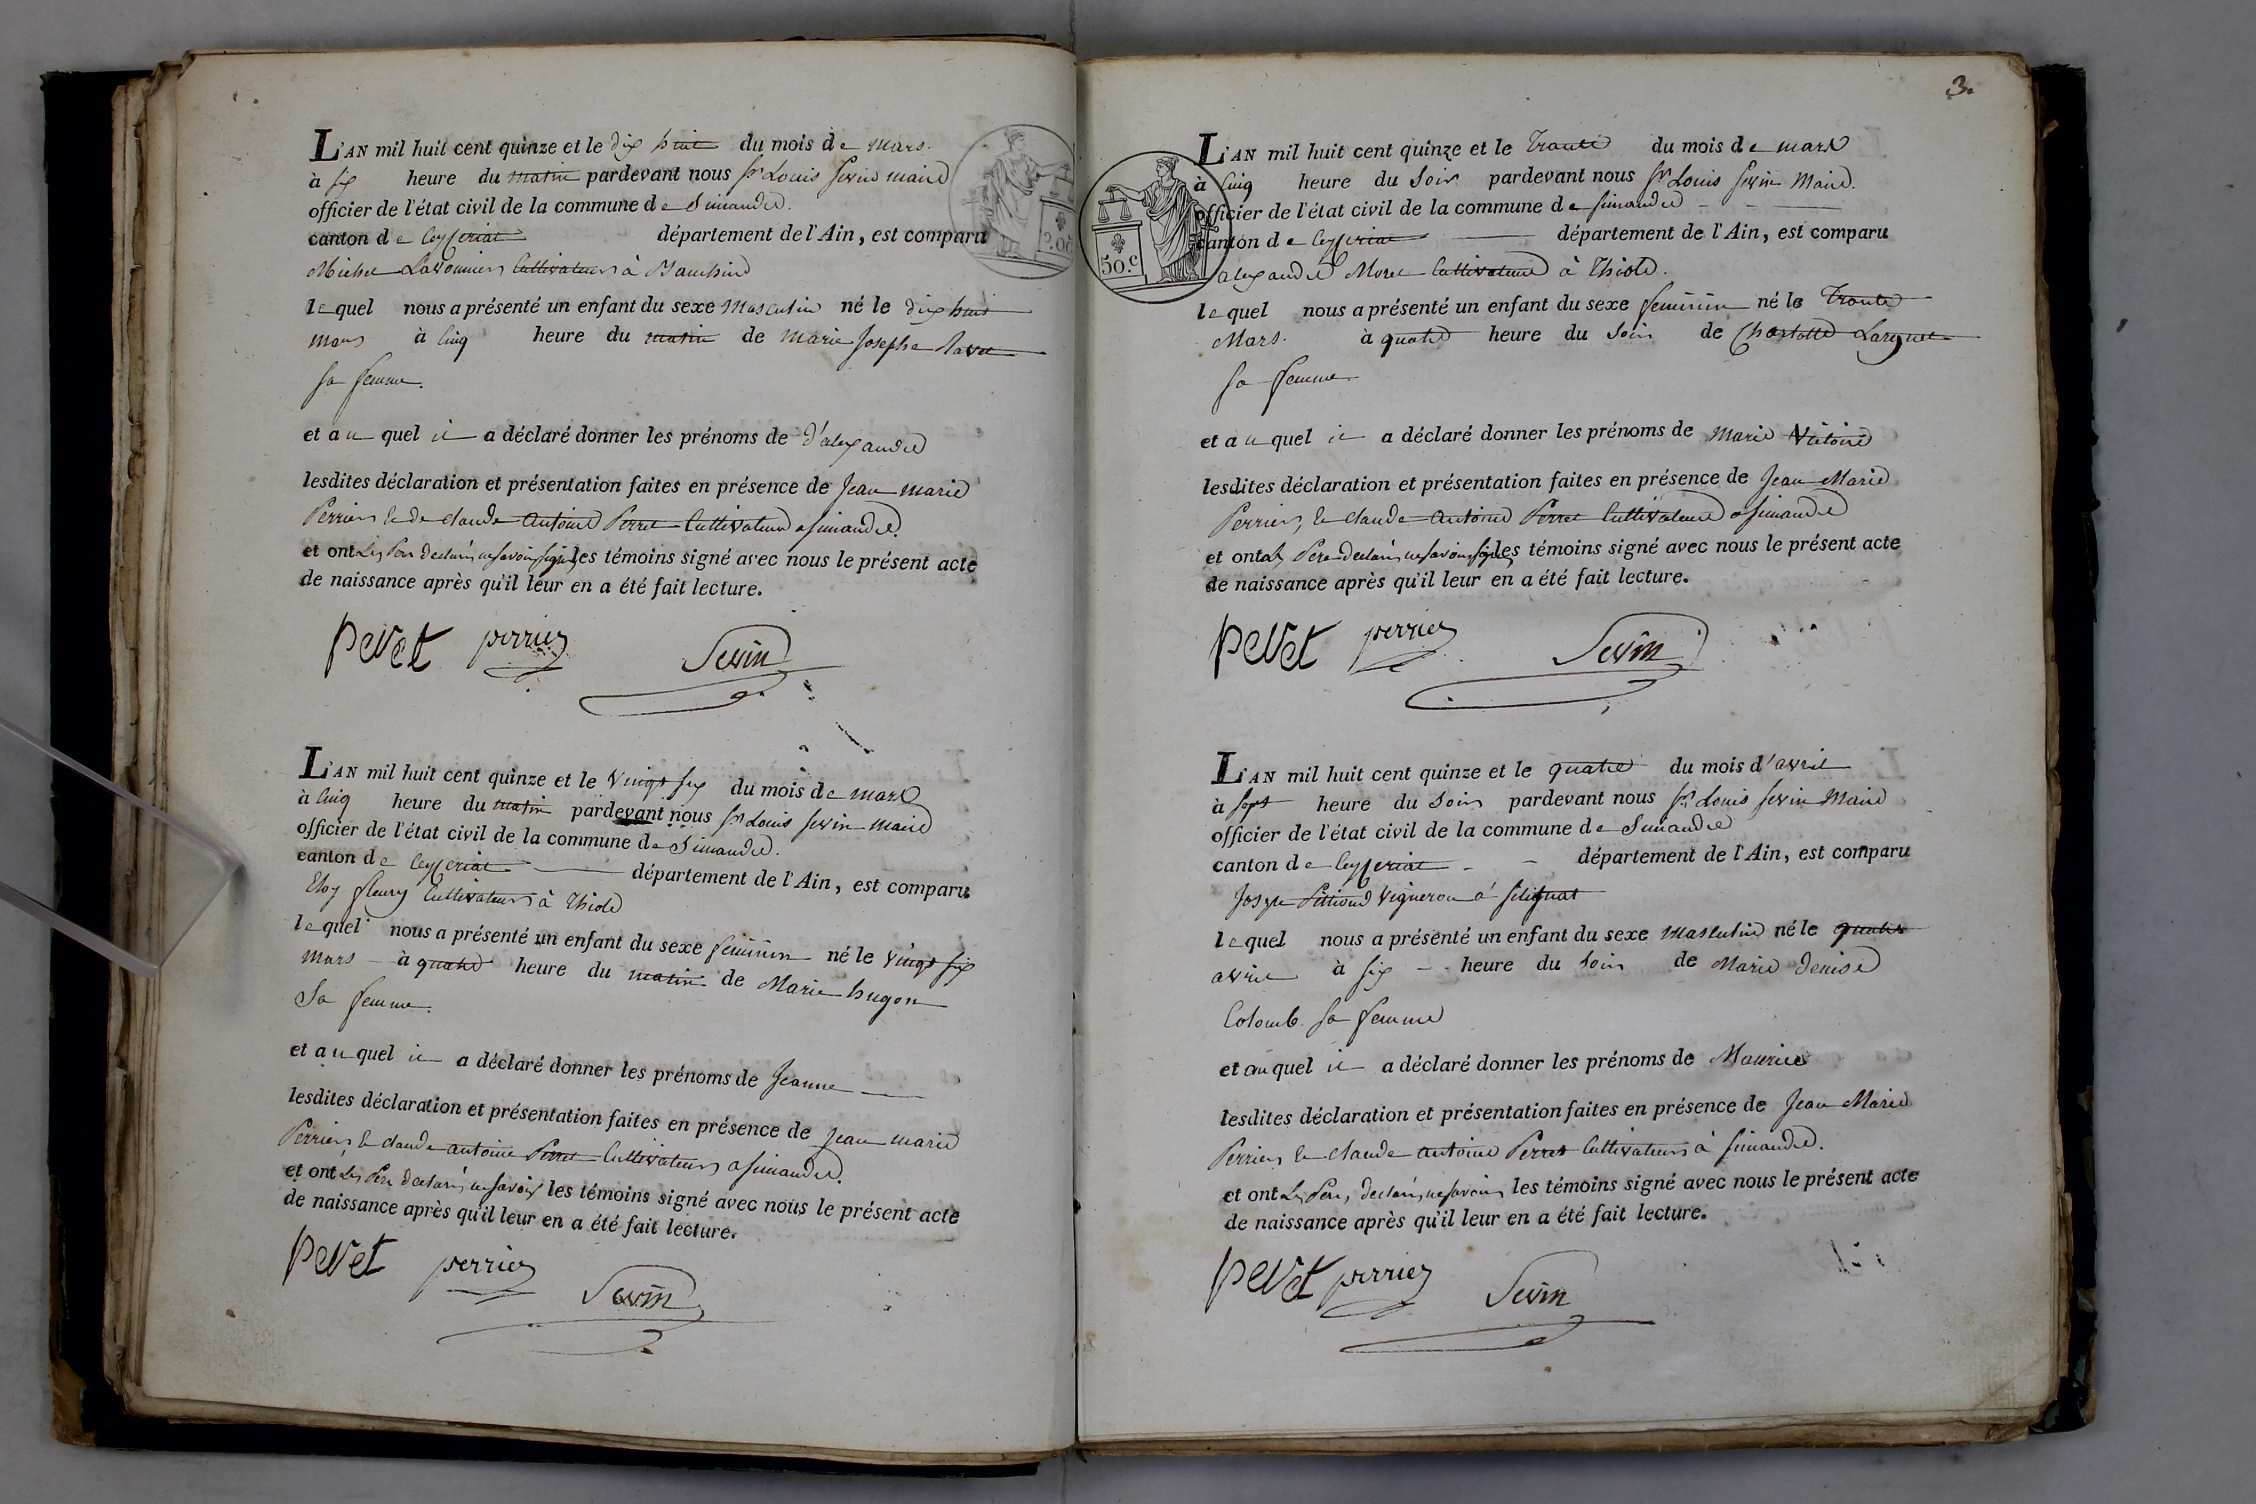 L'AN mil huit cent quinze et le dix huit du mois de mars
à six heure du matin pardevant nous Sr Louis Sevin maire
officier de l'état civil de la commune de Simandre.
canton de Ceyseriat département de l'Ain, est comparu
Michel cultivateur à
lequel nous a présenté un enfant du sexe masculin né le dix huit
mars à cinq heure du matin de marie Josephe Ravet
sa femme.
et auquel il a déclaré donner les prénoms de d'alexandre
lesdites déclaration et présentation faites en présence de Jean marie
Perrier, et de claude antoine Perret Cultivateurs a simandre.
et ont les témoins signé avec nous le présent acte
de naissance après qu'il leur en a été fait lecture.
peret perrier Sevin
L'AN mil huit cent quinze et le vingt six du mois de mars
à cinq heure du matin pardevant nous Sr Louis Sevin maire
officier de l'état civil de la commune de Simandre.
canton de Ceyseriat département de l'Ain, est comparu
Eloy fleury Cultivateur à Thiole
lequel nous a présenté un enfant du sexe feminin né le vingt six
mars à quatre heure du matin de Marie hugon
Sa femme.
et auquel il a déclaré donner les prénoms de Jeanne
lesdites déclaration et présentation faites en présence de Jean marie
Perrier, et claude antoine Perret Cultivateurs a simandre.
et ont les témoins signé avec nous le présent acte
de naissance après qu'il leur en a été fait lecture.
peret perrier Sevin
3.
L'AN mil huit cent quinze et le Trante du mois de mars
à cinq heure du soir pardevant nous Sr Louis Sevin Maire.
officier de l'état civil de la commune de simandre
50.c
canton de Ceyseriat département de l'Ain, est comparu
alexandre Morel Cultivateur à Thiole.
lequel nous a présenté un enfant du sexe feminin né le Trante
Mars. à quatre heure du soir de Charlotte
sa femme
et auquel il a déclaré donner les prénoms de marie Victoire
lesdites déclaration et présentation faites en présence de Jean Marie
Perrier, et claude antoine Perret Cultivateurs a simandre
et ont les témoins signé avec nous le présent acte
de naissance après qu'il leur en a été fait lecture.
peret perrier Sevin
L'AN mil huit cent quinze et le quatre du mois d'avril
à sept heure du soir pardevant nous Sr Louis Sevin Maire
officier de l'état civil de la commune de Simandre
canton de Ceyseriat département de l'Ain, est comparu
Joseph vigneron à silignat
lequel nous a présenté un enfant du sexe masculin né le quatre
avril à six heure du soir de Marie denise
Colomb. sa femme
et auquel il a déclaré donner les prénoms de Maurice
lesdites déclaration et présentation faites en présence de Jean Marie
Perrier, et claude antoine Perret Cultivateurs à simandre.
et ont les témoins signé avec nous le présent acte
de naissance après qu'il leur en a été fait lecture.
peret perrier Sevin